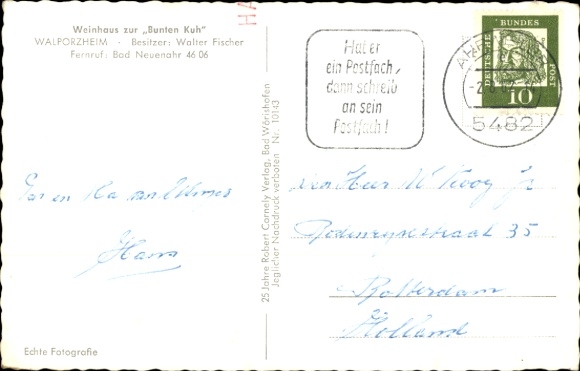 Weinhaus zur „Bunten Kuh"
WALPORZHEIM - Besitzer: Walter Fischer
Fernruf: Bad Neuenahr 46 06
HA
Hat er
ein Postfach,
dann schreib
an sein
Postfach!
DEUTSCHE BUNDESPOST
10
5482
25 Jahre Robert Cornely Verlag, Bad Wörishofen
Jeglicher Nachdruck verboten Nr. 10143
en
Hans
den Heer W
35
Rotterdam
Holland
Echte Fotografie